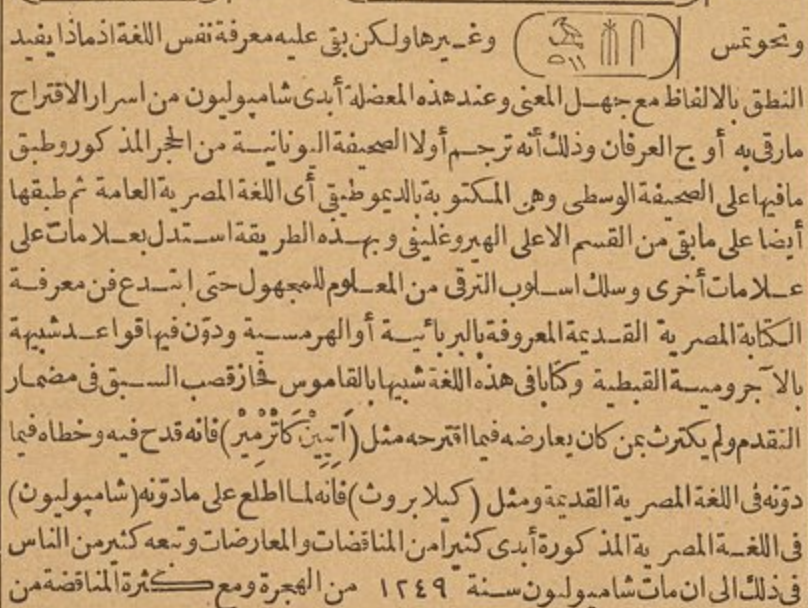 وتحوتمس وغيرها ولكن بقى عليه معرفة نفس اللغة اذ ماذا يفيد
النطق بالالفاظ مع جهل المعنى وعند هذه المعضلة أبدى شامبوليون من اسرار الاقتراح
مارقى به أوج العرفان وذلك أنه ترجم أولا الصحيفة اليونانية من الحجر المذكور وطبق
مافيها على الصحيفة الوسطى وهى المكتوبة بالديموطيقى أى اللغة المصرية العامة ثم طبقها
أيضا على مابقى من القسم الاعلى الهيروغليفى وبهذه الطريقة استدل بعلامات على
علامات أخرى وسلك اسلوب الترقى من المعلوم للمجهول حتى ابتدع فن معرفة
الكتابة المصرية القديمة المعروفة بالبربائية أو الهرمسية ودون فيها قواعد شبيهة
بالآجرومية القبطية وكتابا فى هذه اللغة شبيها بالقاموس فحاز قصب السبق فى مضمار
التقدم ولم يكترث بمن كان يعارضه فيما اقترحه مثل (اَتيِينْ كَاتْرْمِيرْ) فانه قدح فيه وخطاه فيما
دوّنه فى اللغة المصرية القديمة ومثل (كيلابروث) فانه لما اطلع على مادوّنه (شامبوليون)
فى اللغة المصرية المذكورة أبدى كثيرا من المناقضات والمعارضات وتبعه كثير من الناس
فى ذلك الى ان مات شامبوليون سنة ١٢٤٩ من الهجرة ومع كثرة المناقضة من